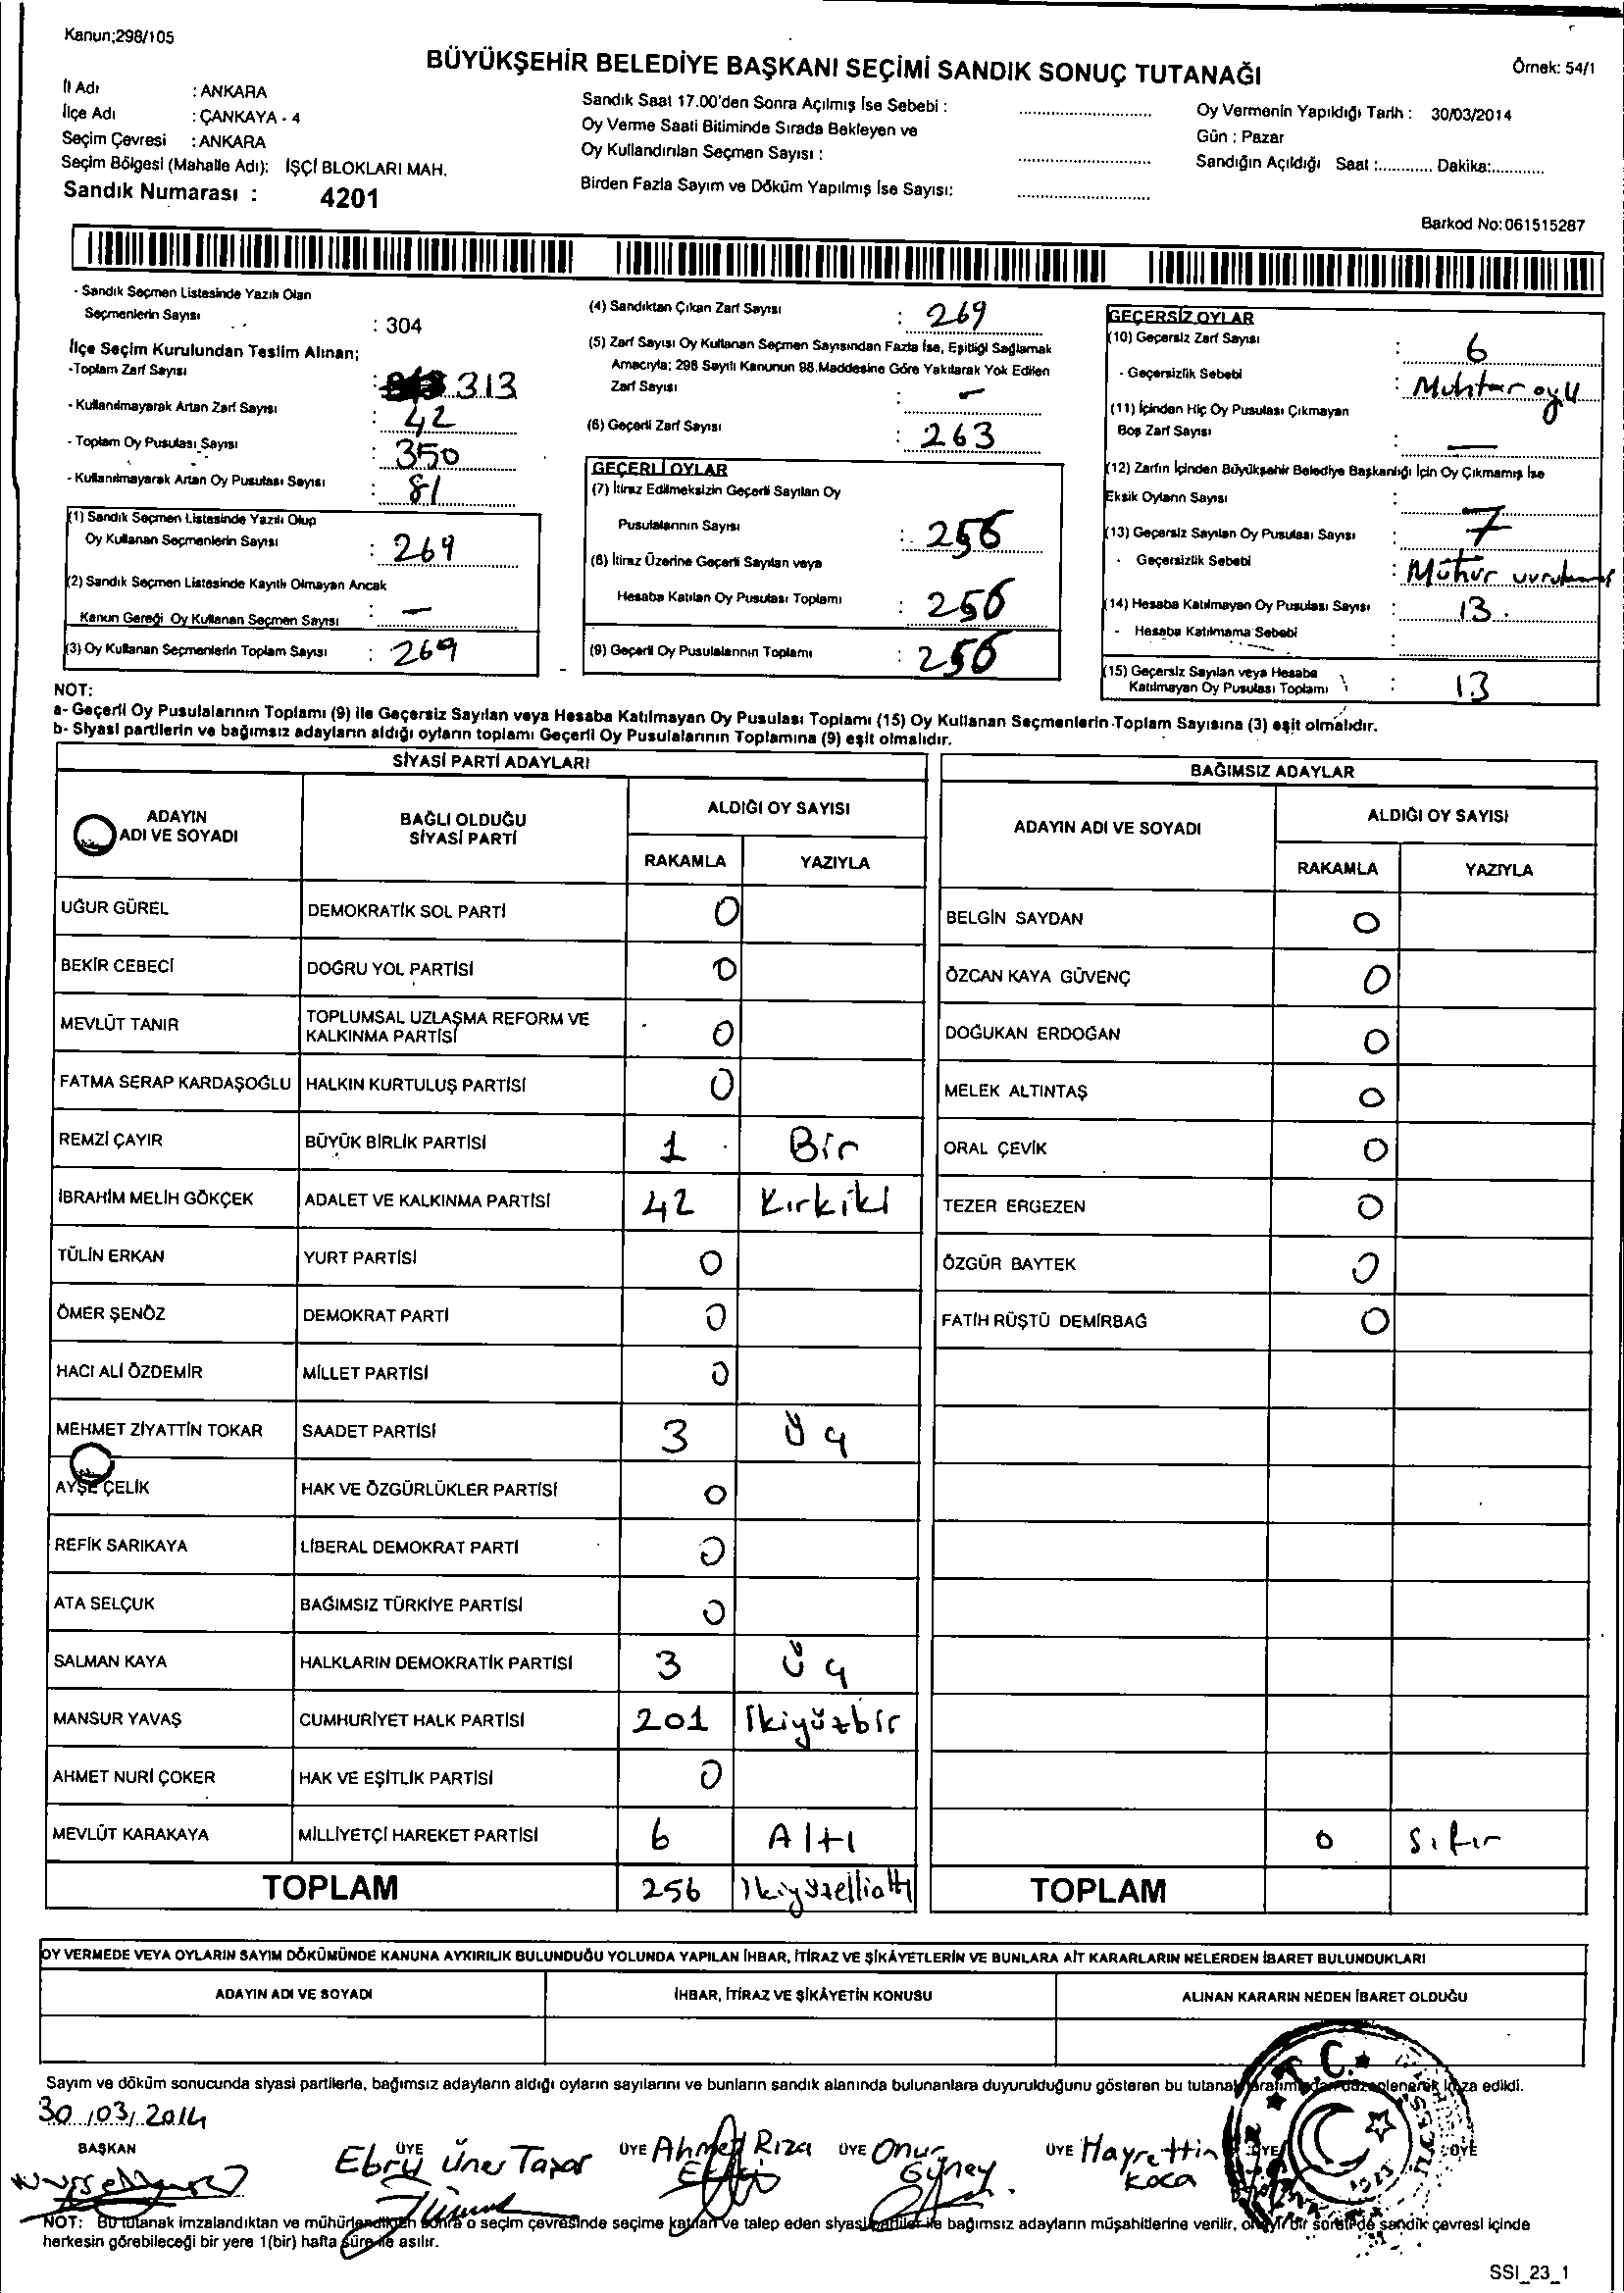 Kanun;298/105
BÜYÜKŞEHİR BELEDİYE BAŞKANI SEÇİMİ SANDIK SONUÇ TUTANAĞI
Örnek: 54/1
İl Adı : ANKARA
İlçe Adı : ÇANKAYA - 4
Seçim Çevresi : ANKARA
Seçim Bölgesi (Mahalle Adı): İŞÇİ BLOKLARI MAH.
Sandık Numarası : 4201
Sandık Saat 17.00'den Sonra Açılmış İse Sebebi :
Oy Verme Saati Bitiminde Sırada Bekleyen ve
Oy Kullandırılan Seçmen Sayısı :
Birden Fazla Sayım ve Döküm Yapılmış İse Sayısı:
Oy Vermenin Yapıldığı Tarih : 30/03/2014
Gün : Pazar
Sandığın Açıldığı Saat :............ Dakika:............
Barkod No:061515287
- Sandık Seçmen Listesinde Yazılı Olan
Seçmenlerin Sayısı : 304
İlçe Seçim Kurulundan Teslim Alınan;
-Toplam Zarf Sayısı : 313
- Kullanılmayarak Artan Zarf Sayısı : 42
- Toplam Oy Pusulası Sayısı : 350
- Kullanılmayarak Artan Oy Pusulası Sayısı : 81
(1) Sandık Seçmen Listesinde Yazılı Olup
Oy Kullanan Seçmenlerin Sayısı : 269
(2) Sandık Seçmen Listesinde Kayıtlı Olmayan Ancak
Kanun Gereği Oy Kullanan Seçmen Sayısı : -
(3) Oy Kullanan Seçmenlerin Toplam Sayısı : 269
(4) Sandıktan Çıkan Zarf Sayısı : 269
(5) Zarf Sayısı Oy Kullanan Seçmen Sayısından Fazla İse, Eşitliği Sağlamak
Amacıyla; 298 Sayılı Kanunun 98.Maddesine Göre Yakılarak Yok Edilen
Zarf Sayısı : -
(6) Geçerli Zarf Sayısı : 263
GEÇERLİ OYLAR
(7) İtiraz Edilmeksizin Geçerli Sayılan Oy
Pusulalarının Sayısı : 256
(8) İtiraz Üzerine Geçerli Sayılan veya
Hesaba Katılan Oy Pusulası Toplamı : 256
(9) Geçerli Oy Pusulalarının Toplamı : 256
GEÇERSİZ OYLAR
(10) Geçersiz Zarf Sayısı : 6
- Geçersizlik Sebebi : Muhtar oyu
(11) İçinden Hiç Oy Pusulası Çıkmayan
Boş Zarf Sayısı : -
(12) Zarfın İçinden Büyükşehir Belediye Başkanlığı İçin Oy Çıkmamış İse
Eksik Oyların Sayısı :
(13) Geçersiz Sayılan Oy Pusulası Sayısı : 7
- Geçersizlik Sebebi : Mühür
(14) Hesaba Katılmayan Oy Pusulası Sayısı : 13.
- Hesaba Katılmama Sebebi :
(15) Geçersiz Sayılan veya Hesaba
Katılmayan Oy Pusulası Toplamı : 13
NOT:
a- Geçerli Oy Pusulalarının Toplamı (9) ile Geçersiz Sayılan veya Hesaba Katılmayan Oy Pusulası Toplamı (15) Oy Kullanan Seçmenlerin Toplam Sayısına (3) eşit olmalıdır.
b- Siyasi partilerin ve bağımsız adayların aldığı oyların toplamı Geçerli Oy Pusulalarının Toplamına (9) eşit olmalıdır.
SİYASİ PARTİ ADAYLARI
ADAYIN ADI VE SOYADI BAĞLI OLDUĞU SİYASİ PARTİ ALDIĞI OY SAYISI
RAKAMLA YAZIYLA
UĞUR GÜREL DEMOKRATİK SOL PARTİ 0
BEKİR CEBECİ DOĞRU YOL PARTİSİ 0
MEVLÜT TANIR TOPLUMSAL UZLAŞMA REFORM VE KALKINMA PARTİSİ 0
FATMA SERAP KARDAŞOĞLU HALKIN KURTULUŞ PARTİSİ 0
REMZİ ÇAYIR BÜYÜK BİRLİK PARTİSİ 1 Bir
İBRAHİM MELİH GÖKÇEK ADALET VE KALKINMA PARTİSİ 42 Kırkiki
TÜLİN ERKAN YURT PARTİSİ 0
ÖMER ŞENÖZ DEMOKRAT PARTİ 0
HACI ALİ ÖZDEMİR MİLLET PARTİSİ 0
MEHMET ZİYATTİN TOKAR SAADET PARTİSİ 3 Üç
AYŞE ÇELİK HAK VE ÖZGÜRLÜKLER PARTİSİ 0
REFİK SARIKAYA LİBERAL DEMOKRAT PARTİ 0
ATA SELÇUK BAĞIMSIZ TÜRKİYE PARTİSİ 0
SALMAN KAYA HALKLARIN DEMOKRATİK PARTİSİ 3 Üç
MANSUR YAVAŞ CUMHURİYET HALK PARTİSİ 201 İkiyüzbir
AHMET NURİ ÇOKER HAK VE EŞİTLİK PARTİSİ 0
MEVLÜT KARAKAYA MİLLİYETÇİ HAREKET PARTİSİ 6 Altı
TOPLAM 256 İkiyüzellialtı
BAĞIMSIZ ADAYLAR
ADAYIN ADI VE SOYADI ALDIĞI OY SAYISI
RAKAMLA YAZIYLA
BELGİN SAYDAN 0
ÖZCAN KAYA GÜVENÇ 0
DOĞUKAN ERDOĞAN 0
MELEK ALTINTAŞ 0
ORAL ÇEVİK 0
TEZER ERGEZEN 0
ÖZGÜR BAYTEK 0
FATİH RÜŞTÜ DEMİRBAĞ 0
0 Sıfır
TOPLAM
OY VERMEDE VEYA OYLARIN SAYIM DÖKÜMÜNDE KANUNA AYKIRILIK BULUNDUĞU YOLUNDA YAPILAN İHBAR, İTİRAZ VE ŞİKÂYETLERİN VE BUNLARA AİT KARARLARIN NELERDEN İBARET BULUNDUKLARI
ADAYIN ADI VE SOYADI İHBAR, İTİRAZ VE ŞİKÂYETİN KONUSU ALINAN KARARIN NEDEN İBARET OLDUĞU
Sayım ve döküm sonucunda siyasi partilerle, bağımsız adayların aldığı oyların sayılarını ve bunların sandık alanında bulunanlara duyurulduğunu gösteren bu tutanak tarafımızdan düzenlenerek imza edildi.
30/03/2014
BAŞKAN ÜYE ÜYE ÜYE ÜYE ÜYE ÜYE
Ebru Üner Tazar Ahmet Rıza Onur Güney Hayrettin Koca
T.C.
1923
NOT: Bu tutanak imzalandıktan ve mühürlendikten sonra o seçim çevresinde seçime katılan ve talep eden siyasi partiler ile bağımsız adayların müşahitlerine verilir, onaylı bir sureti de sandık çevresi içinde
herkesin görebileceği bir yere 1(bir) hafta süre ile asılır.
SSI_23_1